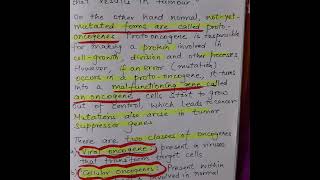 that results in tumour.
On the other hand normal, not-yet-
mutated forms are called proto-
oncogenes. Protooncogene is responsible
for making a protein involved in
cell-growth, division and other process
However, if an error (mutation)
occurs in a proto-oncogene, it turns
into a malfunctioning gene called
an oncogene. cells start to grow
out of control, which leads to cancer
Mutations also arise in tumor
suppressor genes
There are two classes of oncogenes
Viral oncogene: present in viruses
that transform target cells
Cellular oncogenes: Present within
involved in normal